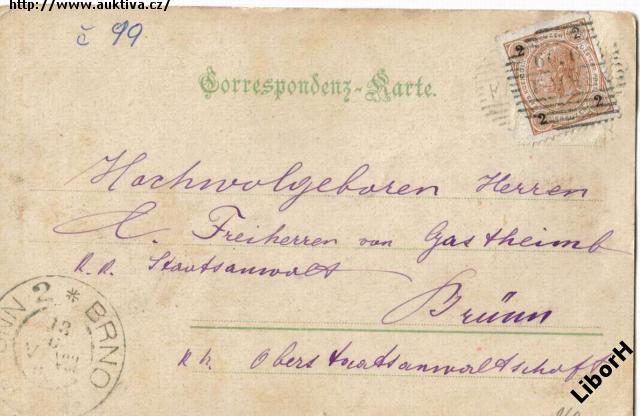 http://www.auktiva.cz/
č 99
Correspondenz-Karte.
2 2
2 2
Hochwolgeboren Herren
Freiherren von Gastheimb
K. K. Staatsanwalt
Brünn
K. K. Oberstaatsanwaltschaft
BRÜNN 2 * BRNO
LiborH